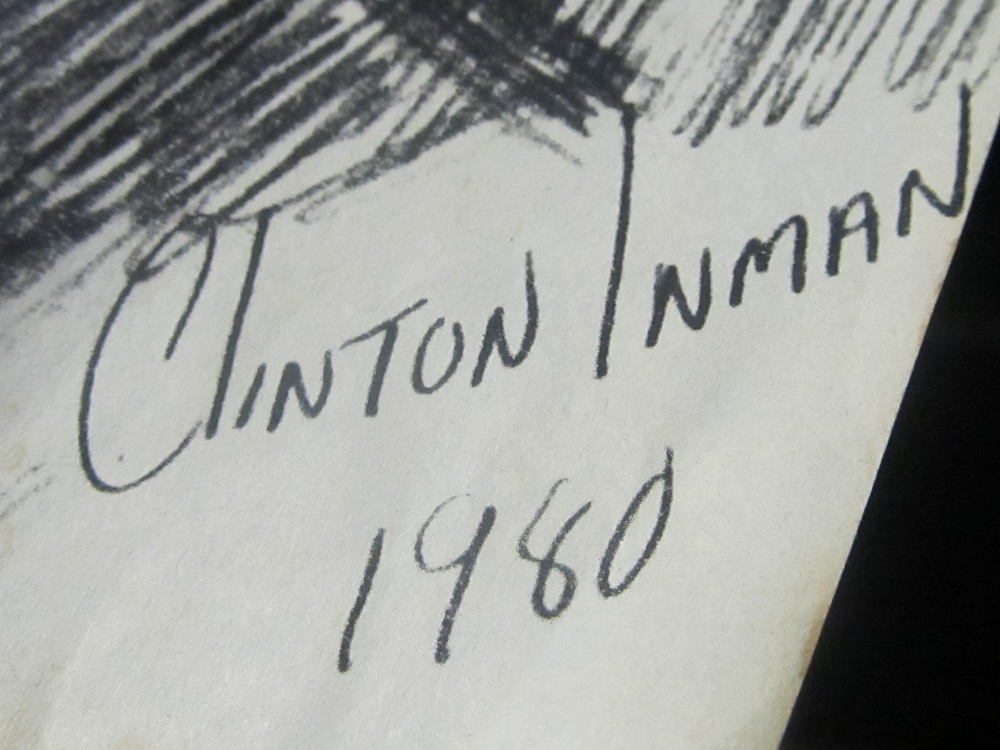 CLINTON INMAN
1980